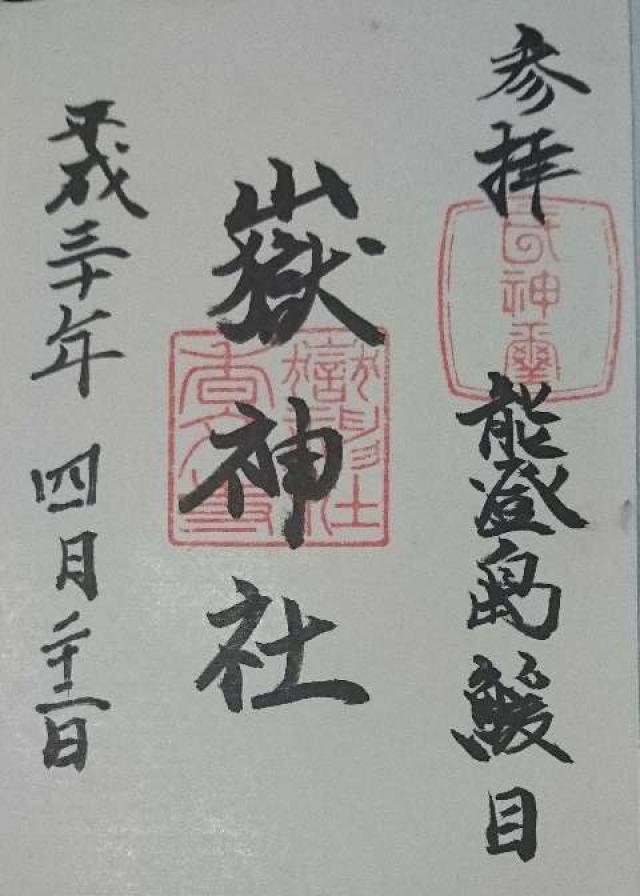 参拝
能登島鰀目
嶽神社
平成三十年 四月二十二日
神璽